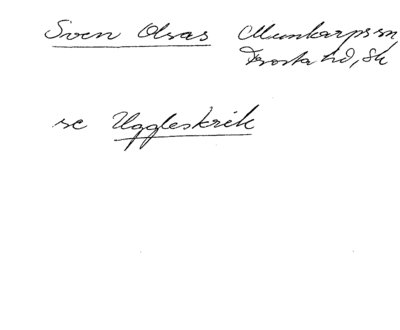 Sven Olsas Munkarps sn
Frosta hd, Sk
se Uggleskrik